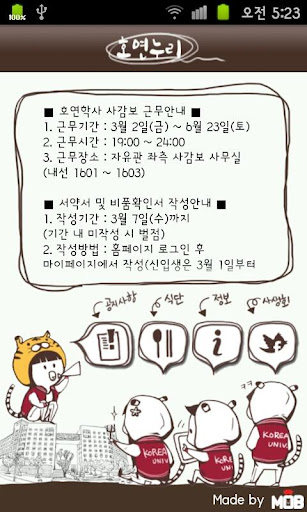 100%
오전 5:23
호연누리
■ 호연학사 사감보 근무안내 ■
1. 근무기간 : 3월 2일(금) ~ 6월 23일(토)
2. 근무시간 : 19:00 ~ 24:00
3. 근무장소 : 자유관 좌측 사감보 사무실
(내선 1601 ~ 1603)
■ 서약서 및 비품확인서 작성안내 ■
1. 작성기간 : 3월 7일(수)까지
(기간 내 미작성 시 벌점)
2. 작성방법 : 홈페이지 로그인 후
마이페이지에서 작성(신입생은 3월 1일부터
공지사항
식단
정보
사생회
ㅋㅋ
KOREA
UNIV.
KOREA
UNIV.
KOREA
UNIV.
Made by MOB